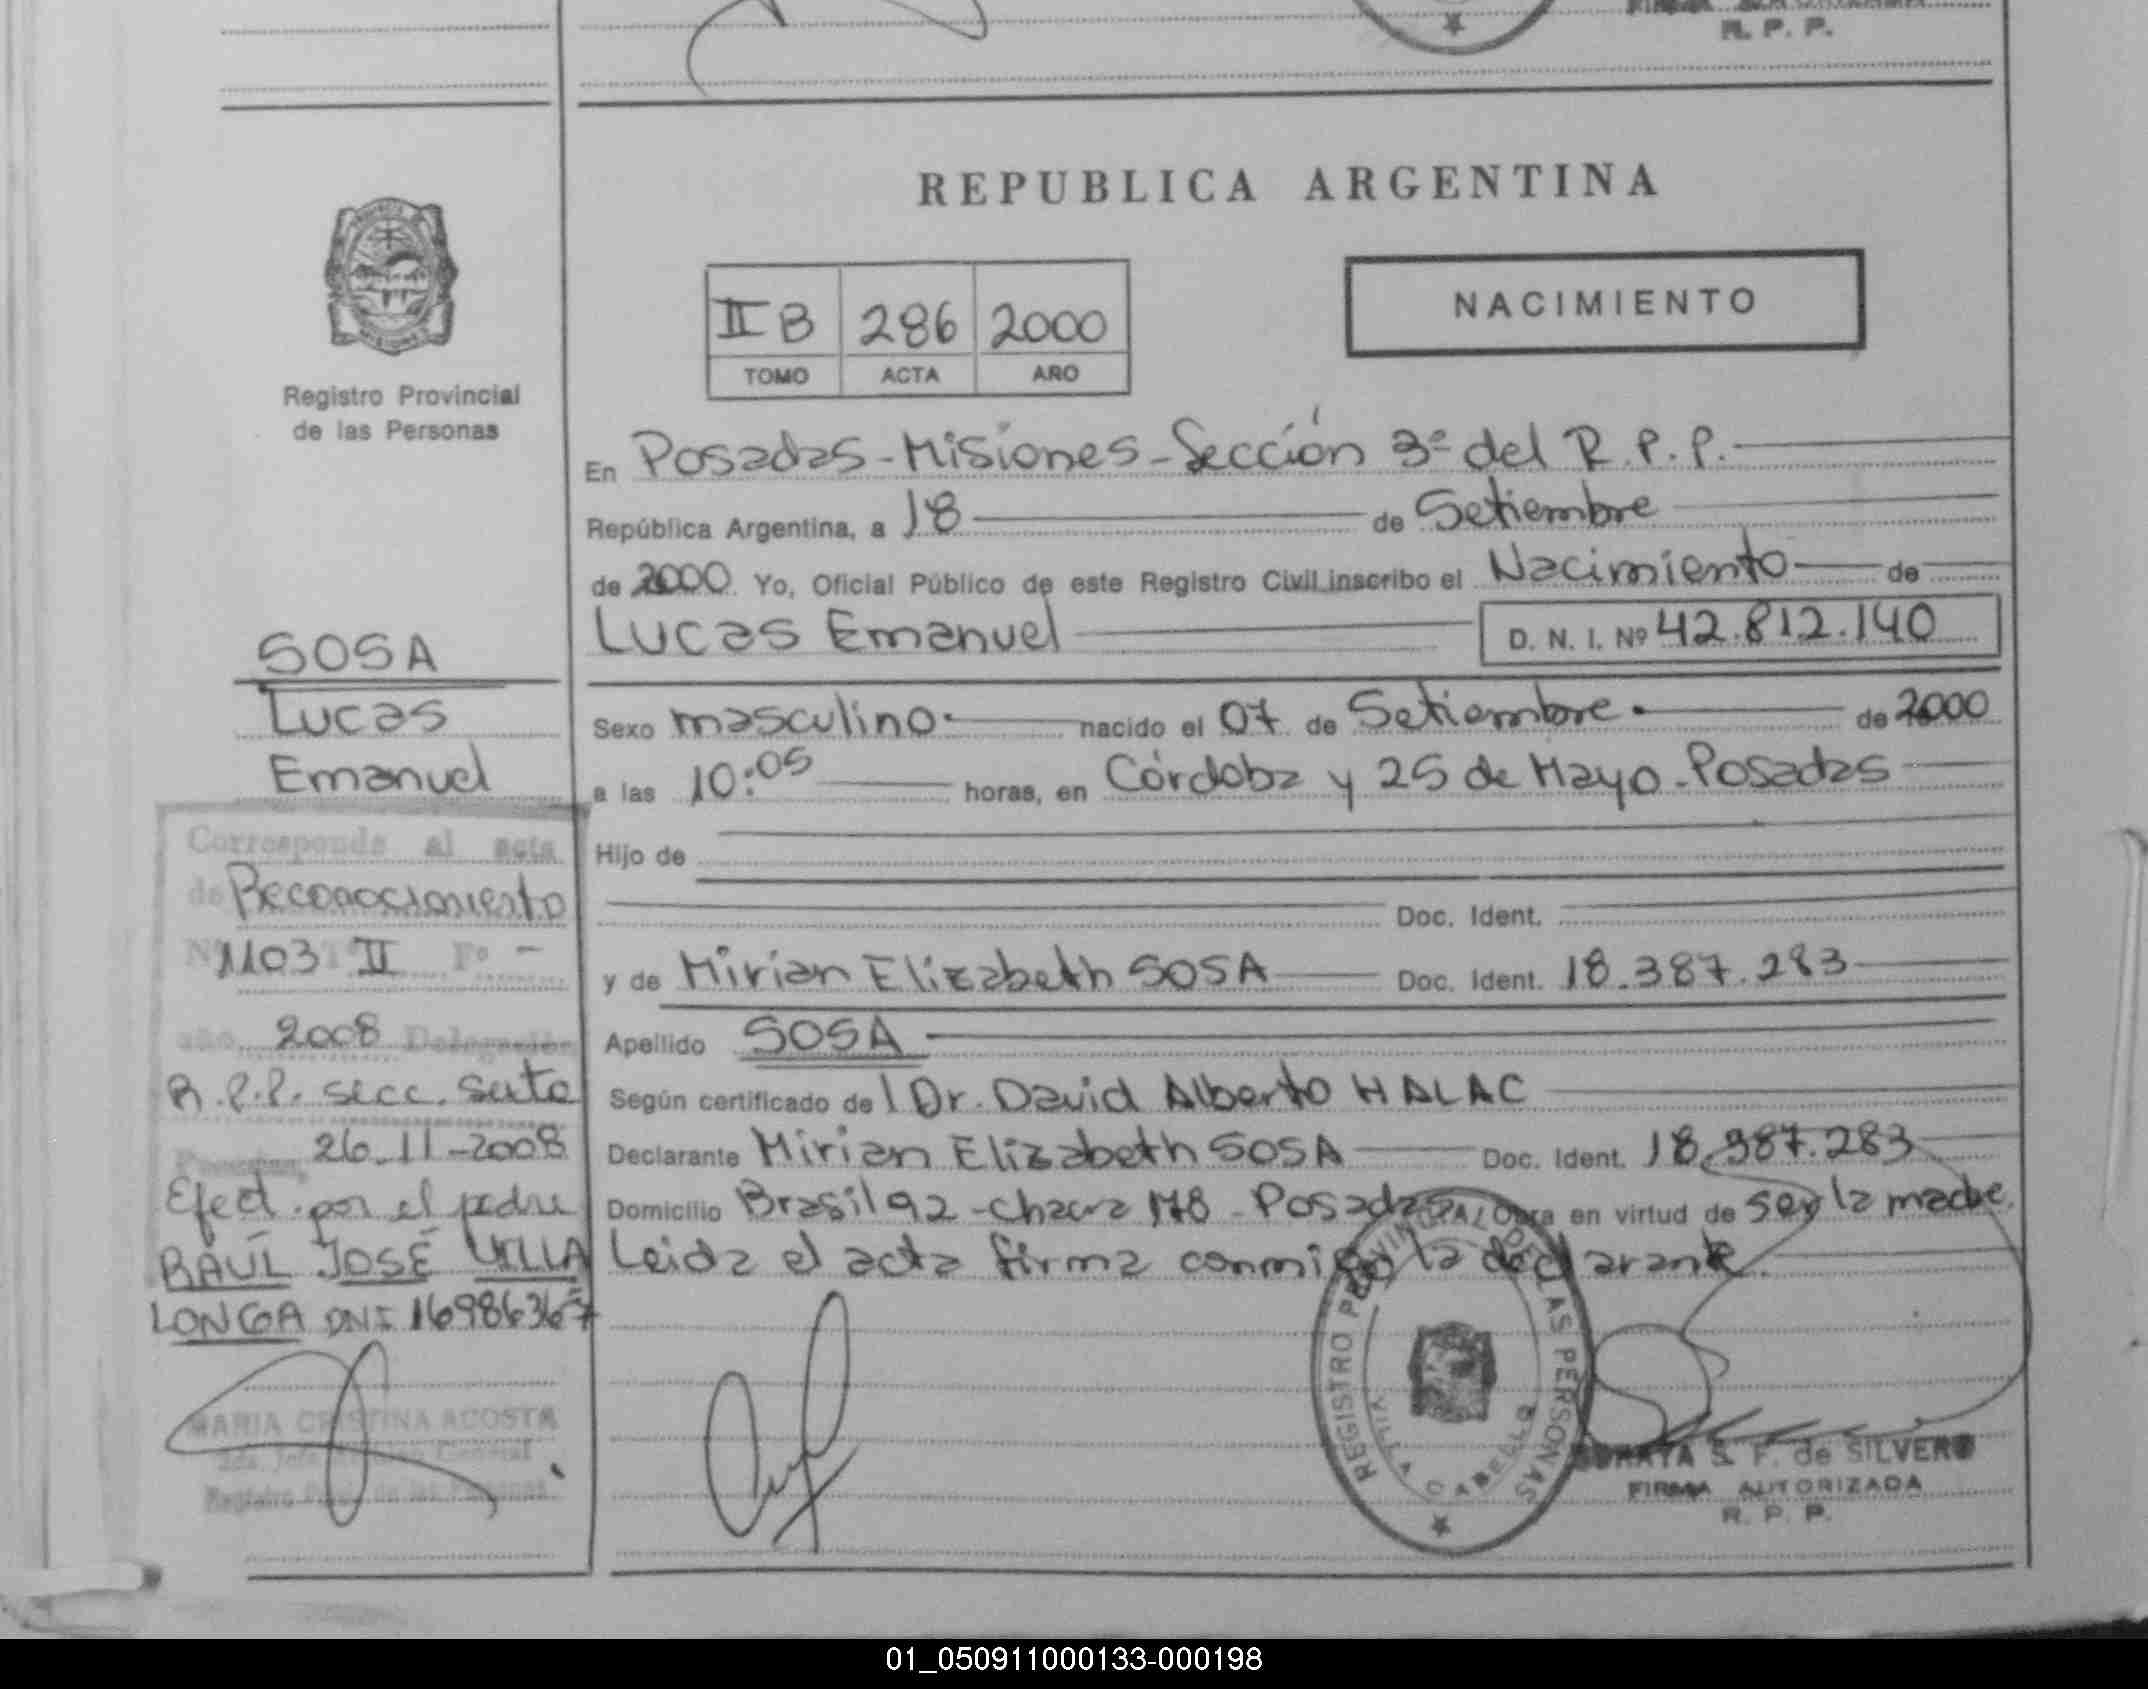 R. P. P.
REPUBLICA ARGENTINA
II B 286 2000
TOMO ACTA AÑO
NACIMIENTO
Registro Provincial
de las Personas
En Posadas - Misiones - Sección 3ª del R. P. P.
República Argentina, a 18 de Setiembre
de 2000 Yo, Oficial Público de este Registro Civil inscribo el Nacimiento de
Lucas Emanuel D. N. I. Nº 42.812.140
Sexo masculino. nacido el 07 de Setiembre. de 2000
a las 10:05 horas, en Córdoba y 25 de Mayo - Posadas
Hijo de
Doc. Ident.
y de Mirian Elizabeth SOSA Doc. Ident. 18.387.283
Apellido SOSA
Según certificado de l Dr. David Alberto HALAC
Declarante Mirian Elizabeth SOSA Doc. Ident. 18.387.283
Domicilio Brasil 92 - chacra 178 - Posadas Obra en virtud de ser la madre.
Leida el acta firma conmigo la declarante.
SOSA
Lucas
Emanuel
Corresponde al acta
de Reconocimiento
Nº 1103 Tº II Fº -
año 2008 Delegación
R.P.P. secc. Sexta
Posadas, 26-11-2008
Efect. por el padre
RAÚL JOSÉ VILLA
LONGA DNI 16986367
MARIA CRISTINA ACOSTA
REGISTRO PROVINCIAL DE LAS PERSONAS
VILLA CABELLO
S. F. de SILVERO
FIRMA AUTORIZADA
R. P. P.
01_050911000133-000198